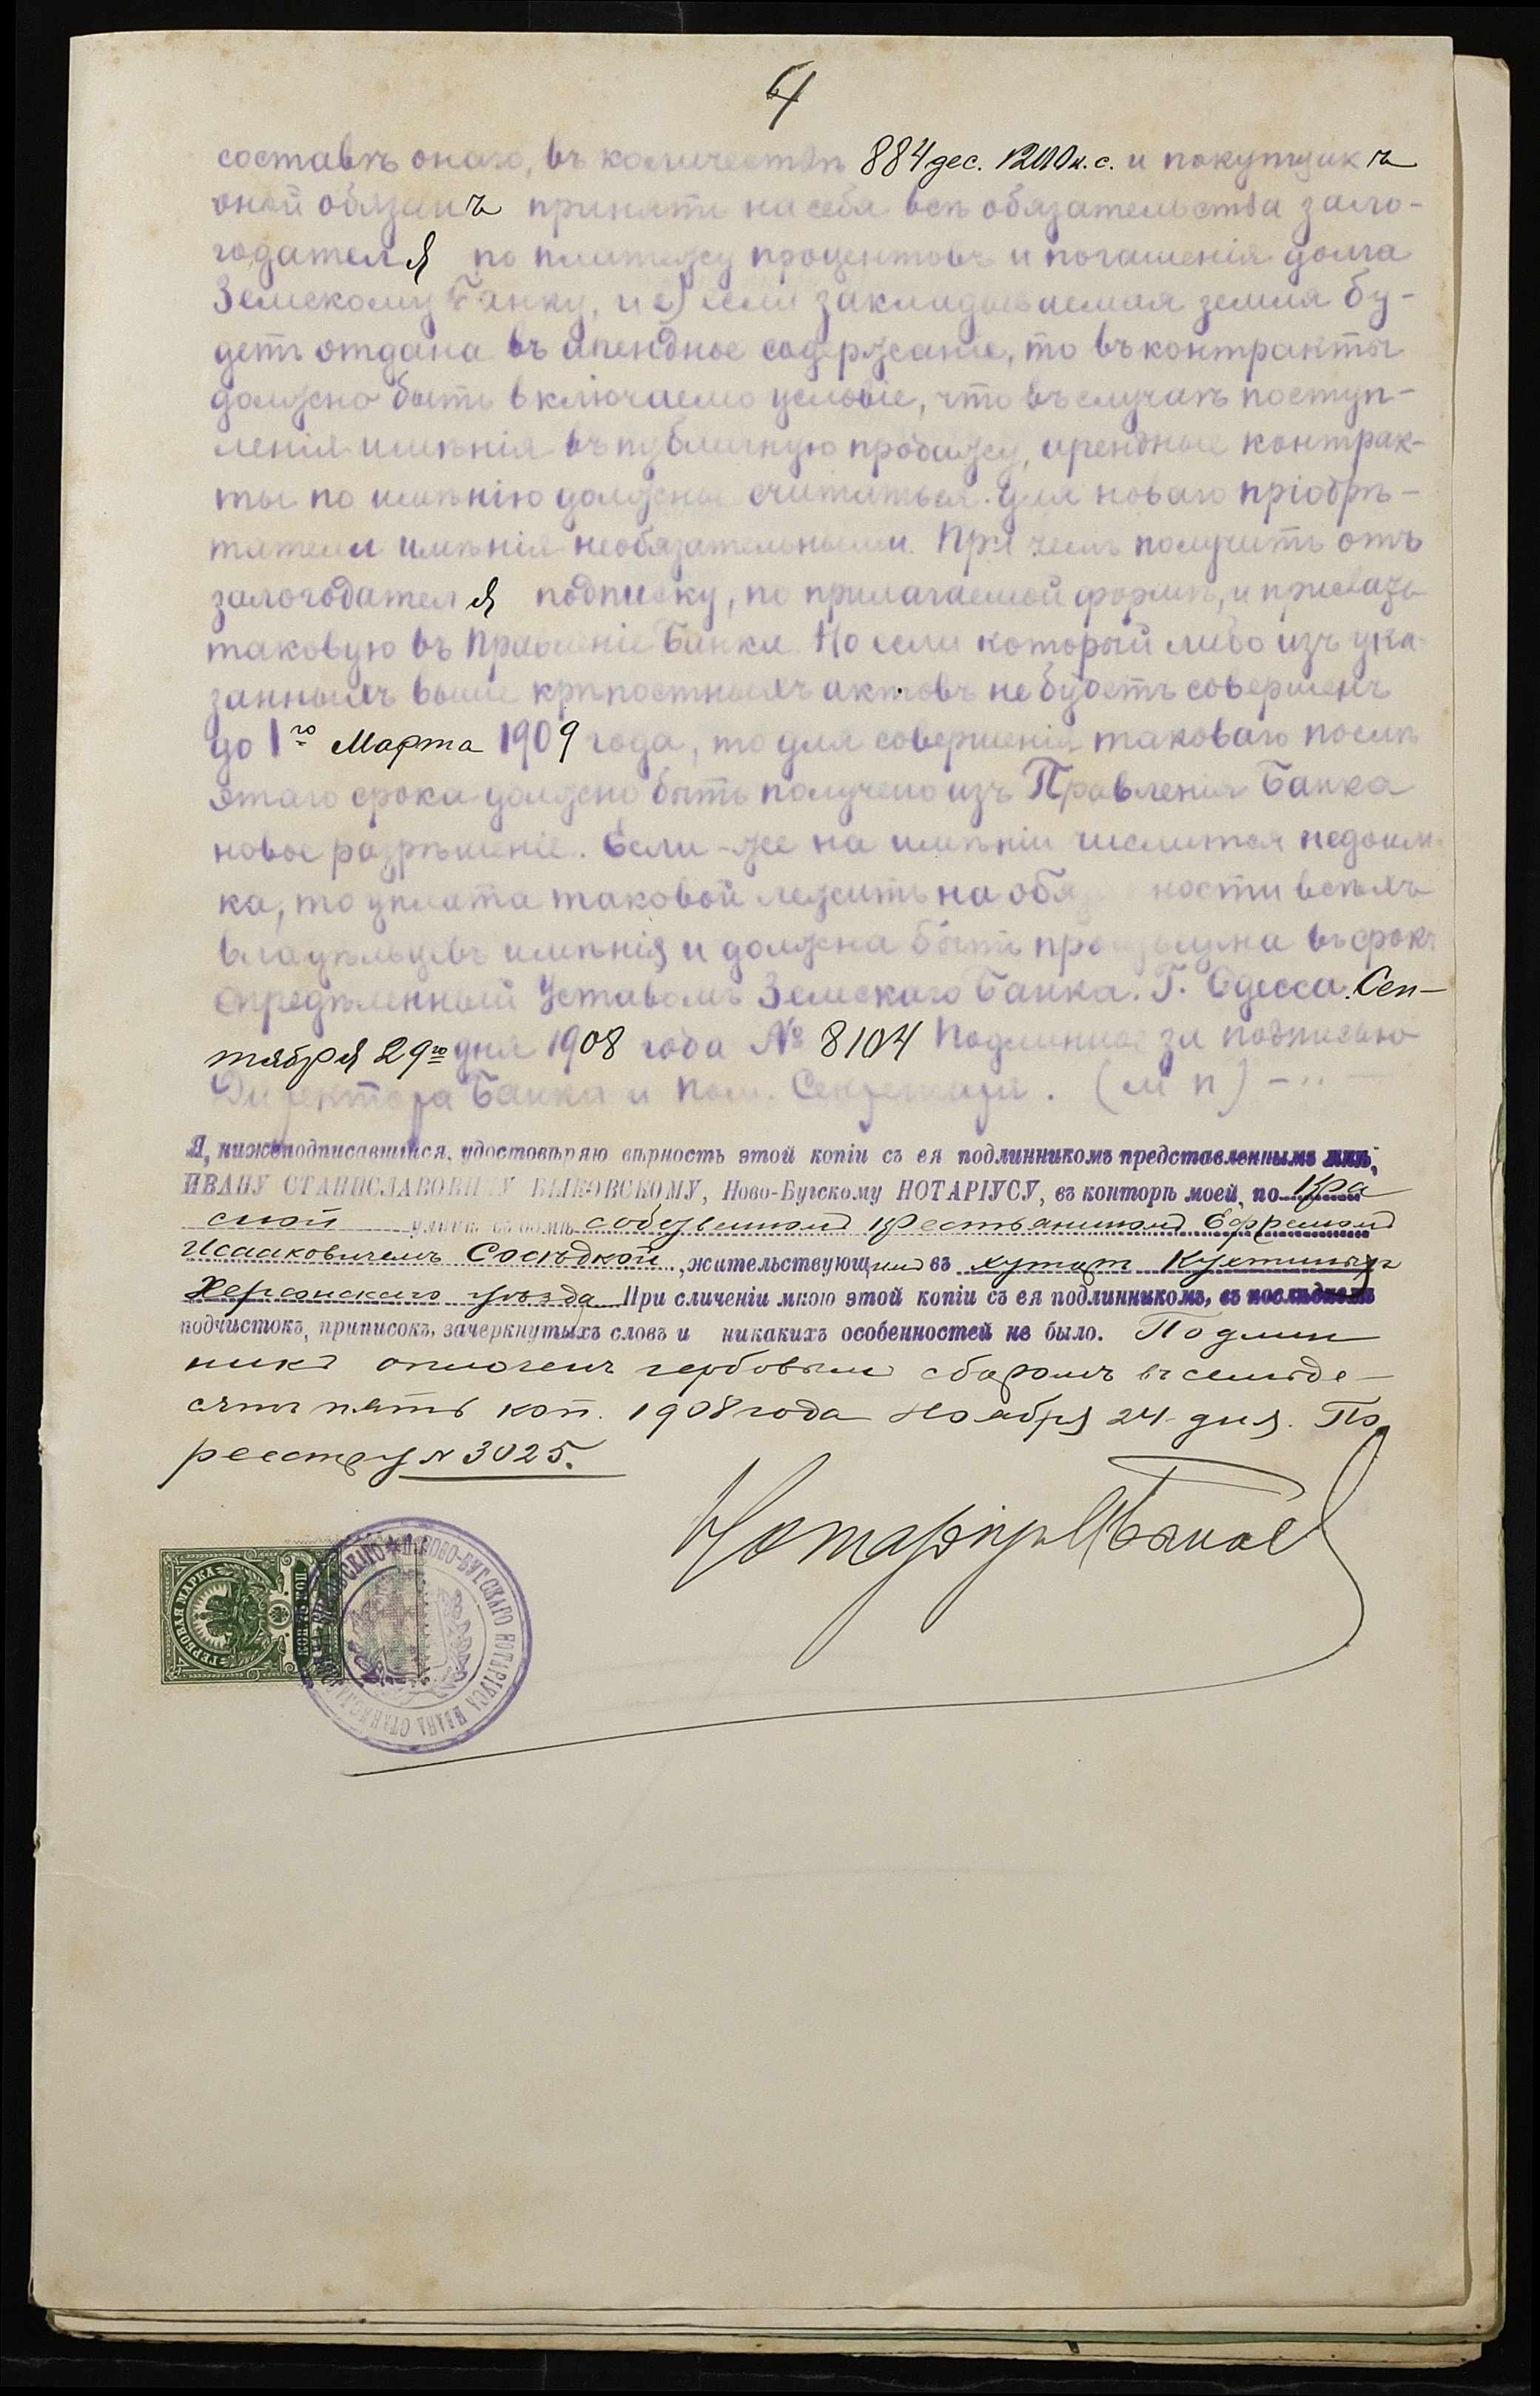 4
составѣ онаго, въ количествѣ 884 дес. 1200 к. с. и покупщикъ
оной обязанъ принять на себя всѣ обязательства зало-
годателя по платежу процентовъ и погашенія долга
Земскому Банку, и е) если закладываемая земля бу-
детъ отдана въ арендное содержаніе, то въ контракты
должно быть включаемо условіе, что въ случаѣ поступ-
ленія имѣнія въ публичную продажу, арендные контрак-
ты по имѣнію должны считаться для новаго пріобрѣ-
тателя имѣнія необязательными. При чемъ получить отъ
залогодателя подписку, по прилагаемой формѣ, и прислать
таковую въ Правленіе Банка. Но если который либо изъ ука-
занныхъ выше крѣпостныхъ актовъ не будетъ совершенъ
до 1го Марта 1909 года, то для совершенія таковаго послѣ
этаго срока должно быть получено изъ Правленія Банка
новое разрѣшеніе. Если-же на имѣніи числится недоим-
ка, то уплата таковой лежитъ на обя ности всѣхъ
владѣльцевъ имѣнія и должна быть произведена въ срокъ
опредѣленный Уставомъ Земскаго Банка. Г. Одесса. Сен-
тября 29го дня 1908 года № 8104 Подлинное за подписью
Директора Банка и Пом. Секретаря. (м п)
Я, нижеподписавшійся, удостовѣряю вѣрность этой копіи съ ея подлинникомъ представленнымъ мнѣ,
ИВАНУ СТАНИСЛАВОВИЧУ БЫКОВСКОМУ, Ново-Бугскому НОТАРІУСУ, въ конторѣ моей, по
улицѣ въ домѣ крестьяниномъ Ефремомъ
Исааковичемъ Сосѣдкой, жительствующимъ въ
Херсонскаго уѣзда При сличеніи мною этой копіи съ ея подлинникомъ, въ послѣднемъ
подчистокъ, приписокъ, зачеркнутыхъ словъ и никакихъ особенностей не было. Подлин
никъ оплоченъ гербовымъ сборомъ въ семьде-
сятъ пять коп. 1908 года Ноября 24 дня. По
реестру N 3025.
Нотаріусъ
ГЕРБОВАЯ МАРКА
НОВО-БУГСКАГО НОТАРІУСА ИВАНА